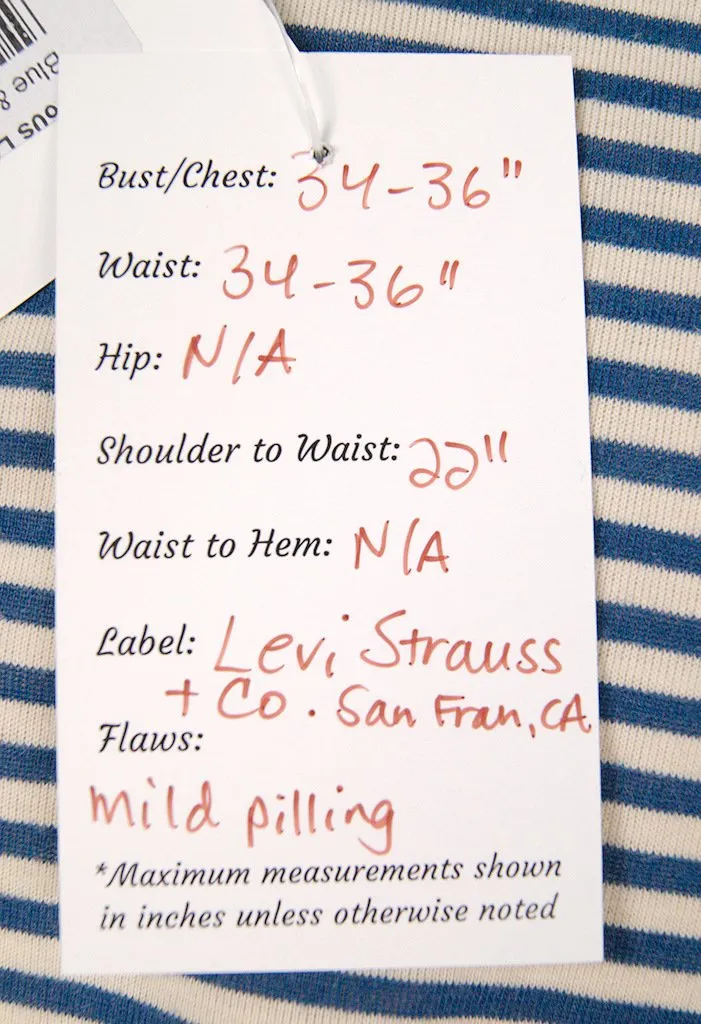 Blue &
ous L
Bust/Chest: 34-36"
Waist: 34-36"
Hip: N/A
Shoulder to Waist: 22"
Waist to Hem: N/A
Label: Levi Strauss
+ Co. San Fran, CA
Flaws:
mild pilling
*Maximum measurements shown
in inches unless otherwise noted